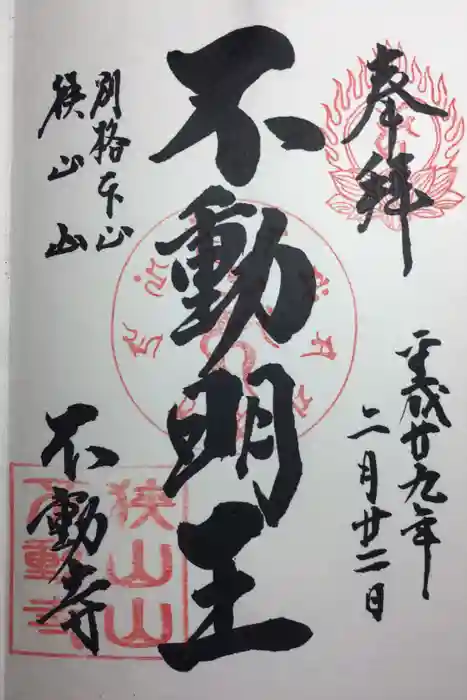 奉拝
平成廿九年
二月廿二日
不動明王
別格本山
狭山山
不動寺
狭山山
不動寺